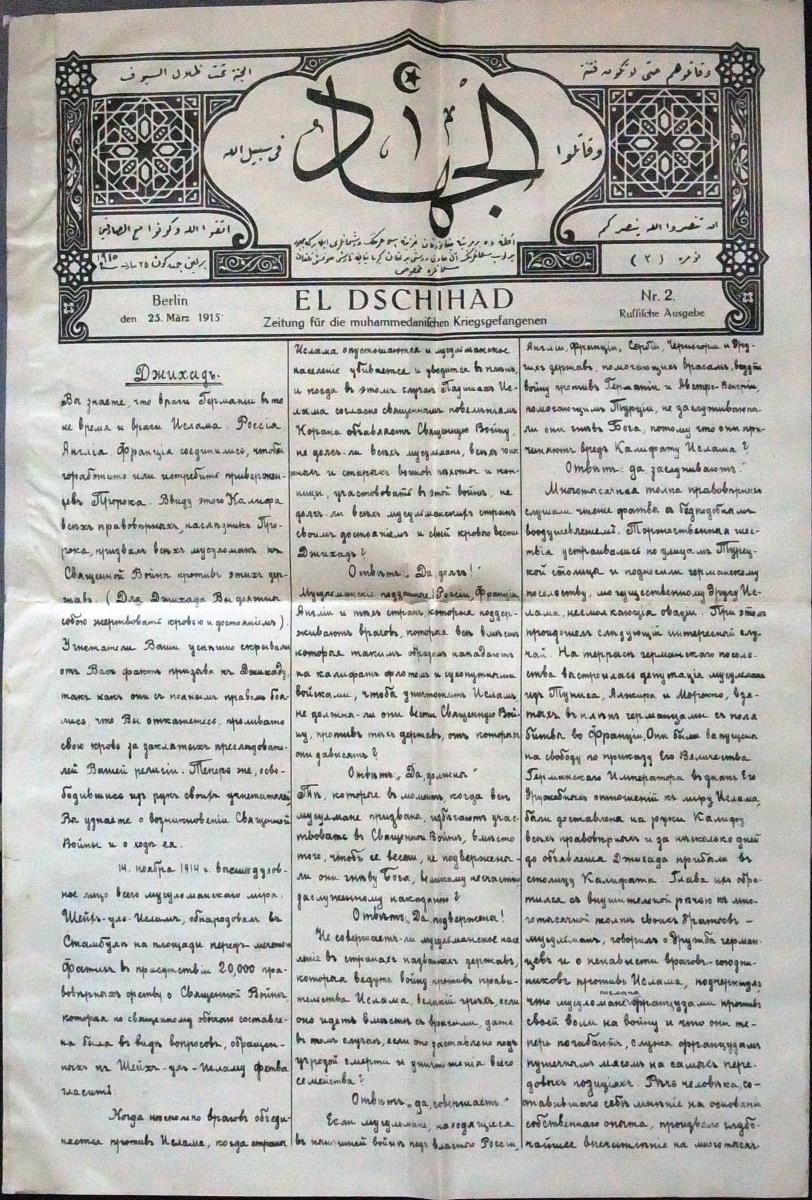 وقاتلوهم حتى لا تكون فتنة
الجنة تحت ظلال السيوف
الجهاد
وقاتلوا
فى سبيل الله
ان تنصروا الله ينصركم
اتقوا الله وكونوا مع الصادقين
نومرو (٢)
El Dschihad
Berlin
den 25. März 1915
Zeitung für die muhammedanischen Kriegsgefangenen
Nr. 2.
Russische Ausgabe
Джихадъ.
Вы знаете, что враги Германіи въ то
не время и враги Ислама. Россія
Англія Франція соединились, чтобы
поработить или истребить привержен-
цевъ Пророка. Ввиду этого Калифа
всѣхъ правовѣрныхъ, наслѣдникъ Про-
рока, призвалъ всѣхъ мусломанъ къ
Священной Войнѣ противъ этихъ дер-
жавъ. (Для Джихада Вы должны
собою жертвовать кровью и достояніемъ).
Угнетатели Ваши успѣшно скрывали
отъ Васъ фактъ призыва къ Джихаду,
такъ какъ они съ полнымъ правомъ боя-
лись, что Вы откажетесь, проливать
свою кровь за заклятыхъ преслѣдовате-
лей Вашей религіи. Теперь же, осво-
бодившись изъ рукъ своихъ угнетателей,
Вы узнаете о возникновеніи Священной
Войны и о ходѣ ея.
14. ноября 1914 г. высшее духов-
ное лицо всего мусломанскаго міра.
Шейхъ-уло-Исламъ, обнародовалъ въ
Стамбулѣ на площади передъ мечетью
Фатихъ въ присутствіи 20,000 пра-
вовѣрныхъ фетву о Священной Войнѣ,
которая по священному обычаю составле-
на была въ видѣ вопросовъ, обращен-
ныхъ къ Шейхъ-уль-Исламу фетва
гласитъ:
Когда нѣсколько враговъ объеди-
няется противъ Ислама, когда страны
Ислама опустошаются и мусульманское
населеніе убивается и уводится въ плѣнъ,
и когда въ этомъ случаѣ Падишахъ Ис-
лама согласно священнымъ повелѣніямъ
Корана объявляетъ Священную Войну,
не долгъ-ли всѣхъ мусульманъ, всѣхъ юн-
ныхъ и старыхъ воиновъ пѣхоты и кон-
ницы, участвовать въ этой войнѣ, не
долгъ-ли всѣхъ мусульманскихъ странъ
своимъ достояніемъ и своей кровью вести
Джихадъ?
Отвѣтъ: „Да, долгъ!"
Мусульманскіе подданные Россіи, Франціи,
Англіи и тѣхъ странъ, которыя поддер-
живаютъ враговъ, которыя всѣ вмѣстѣ
которая такимъ образомъ нападаютъ
на калифатъ флотомъ и сухопутными
войсками, чтобы уничтожить Исламъ,
не должна-ли они вести Священную Вой-
ну, противъ тѣхъ державъ, отъ которыхъ
они зависятъ?
Отвѣтъ: „Да, должны"
Тѣ, которые въ моментъ, когда всѣ
мусульмане призваны, избѣгаютъ учас-
твовать въ Священной Войнѣ, вмѣсто
того, чтобъ ее вести, не подвержены-
ли они гнѣву Бога, великому несчастію
заслуженному наказанію?
Отвѣтъ: „Да, подвержены!
Не совершаетъ-ли мусульманское насе-
леніе въ странахъ названныхъ державъ,
которыя ведутъ войну противъ прави-
тельства Ислама, великій грѣхъ, если
оно идетъ вмѣстѣ съ врагами, даже
въ томъ случаѣ, если оно заставлено подъ
угрозой смерти и уничтоженія всего
семейства?
Отвѣтъ: „да, совершаетъ."
Если мусульмане, находящіеся
въ нынѣшней войнѣ подъ властью Россіи,
Англіи, Франціи, Сербіи, Черногоріи и дру-
гихъ державъ, помогающихъ врагамъ, ведутъ
войну противъ Германіи и Австро-Венгріи,
помогающимъ Турціи, не заслуживаютъ-
ли они гнѣвъ Бога, потому что они при-
чиняютъ вредъ Калифату Ислама?
Отвѣтъ: да, заслуживаютъ."
Многотысячная толпа правовѣрныхъ
слушали чтеніе фатвы съ бездподобнымъ
воодушевленіемъ. Торжественныя шес-
твія устраивались по улицамъ Турец-
кой столицы и подносили германскому
посольству, могущественному другу Ис-
лама, несмолкающія оваціи. При этомъ
произошелъ слѣдующій интересный слу-
чай. На террасѣ германскаго посоль-
ства выстроилась депутація мусульманъ
изъ Туниса, Алжира и Марокко, взя-
тыхъ въ плѣнъ германцами съ поля
битвы во Франціи. Они были запущены
на свободу по приказу Его Величества
Германскаго Императора въ знакъ Его
дружебныхъ отношеній къ міру Ислама,
были доставлены на руки Калифу
всѣхъ правовѣрныхъ и за нѣсколько дней
до объявленія Джихада прибыли въ
столицу Калифата. Глава ихъ обра-
тился съ внушительной рѣчью къ мно-
готысячной толпѣ своихъ братьевъ-
мусульманъ, говорилъ о дружбѣ герман-
цевъ и о ненависти враговъ-союзни-
ковъ противъ Ислама, подчеркнулъ
что мусульмане посланы французами противъ
своей воли на войну и что они те-
перь погибаютъ, служа французамъ
пушечнымъ мясомъ на самыхъ пере-
довыхъ позиціяхъ. Рѣчь человѣка, со-
ставившаго себѣ мнѣніе на основаніи
собственнаго опыта, произвело глубо-
чайшее впечатлѣніе на многотысяч-